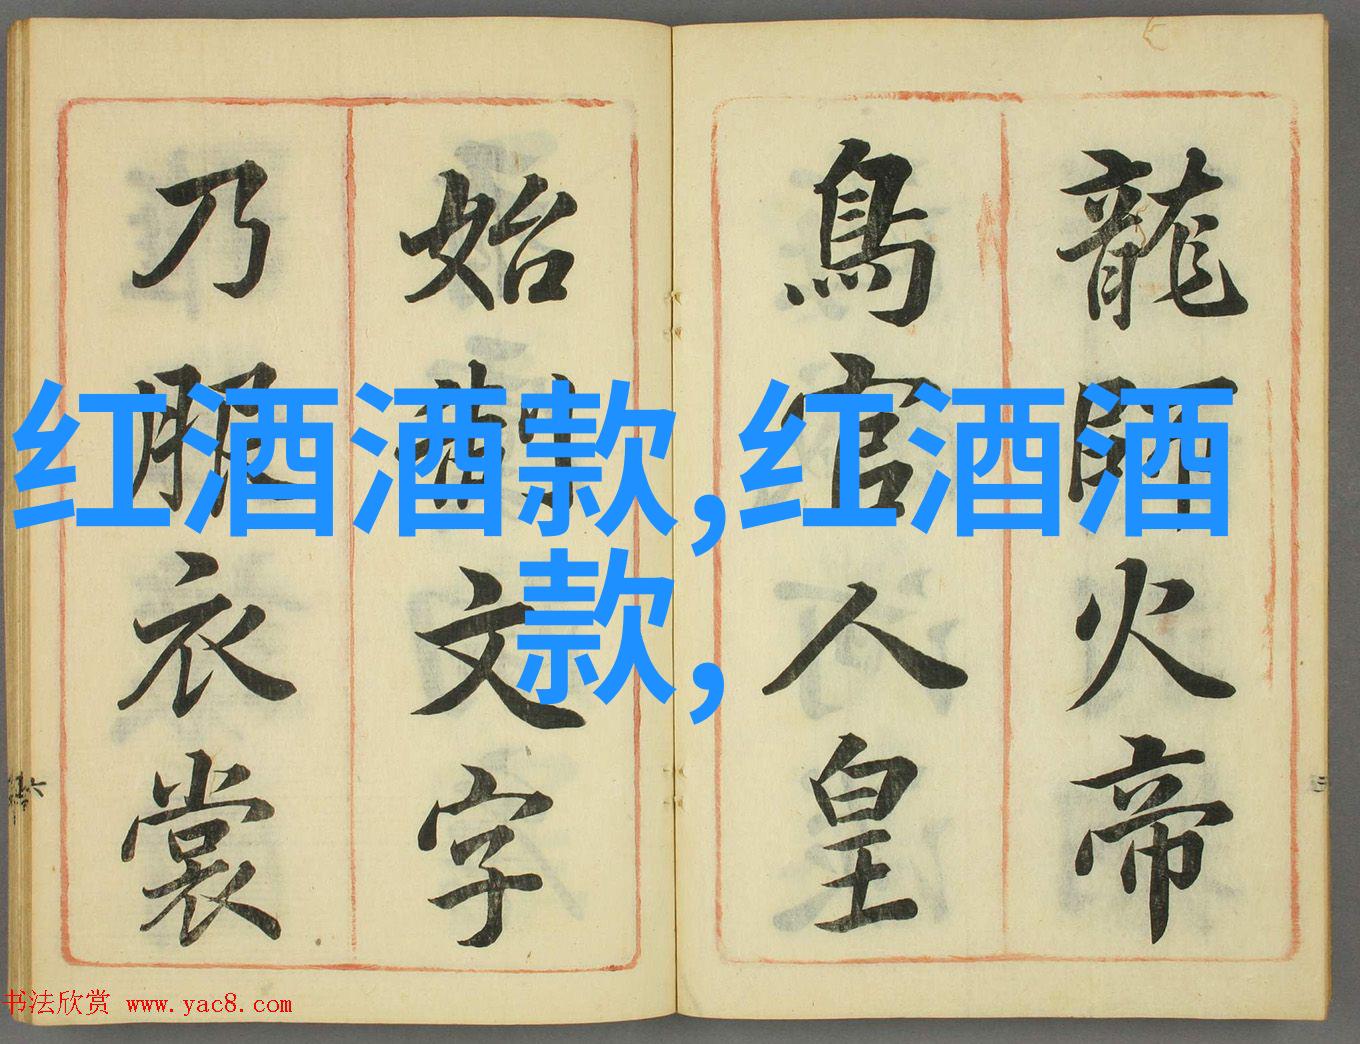 龍師火帝
鳥官人皇
始制文字
乃服衣裳
红酒酒款,红酒酒
款,
书法欣赏 www.yac8.com